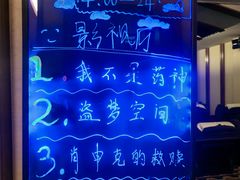 4:00-24
影视厅
1. 我不是药神
2. 盗梦空间
3. 肖申克的救赎